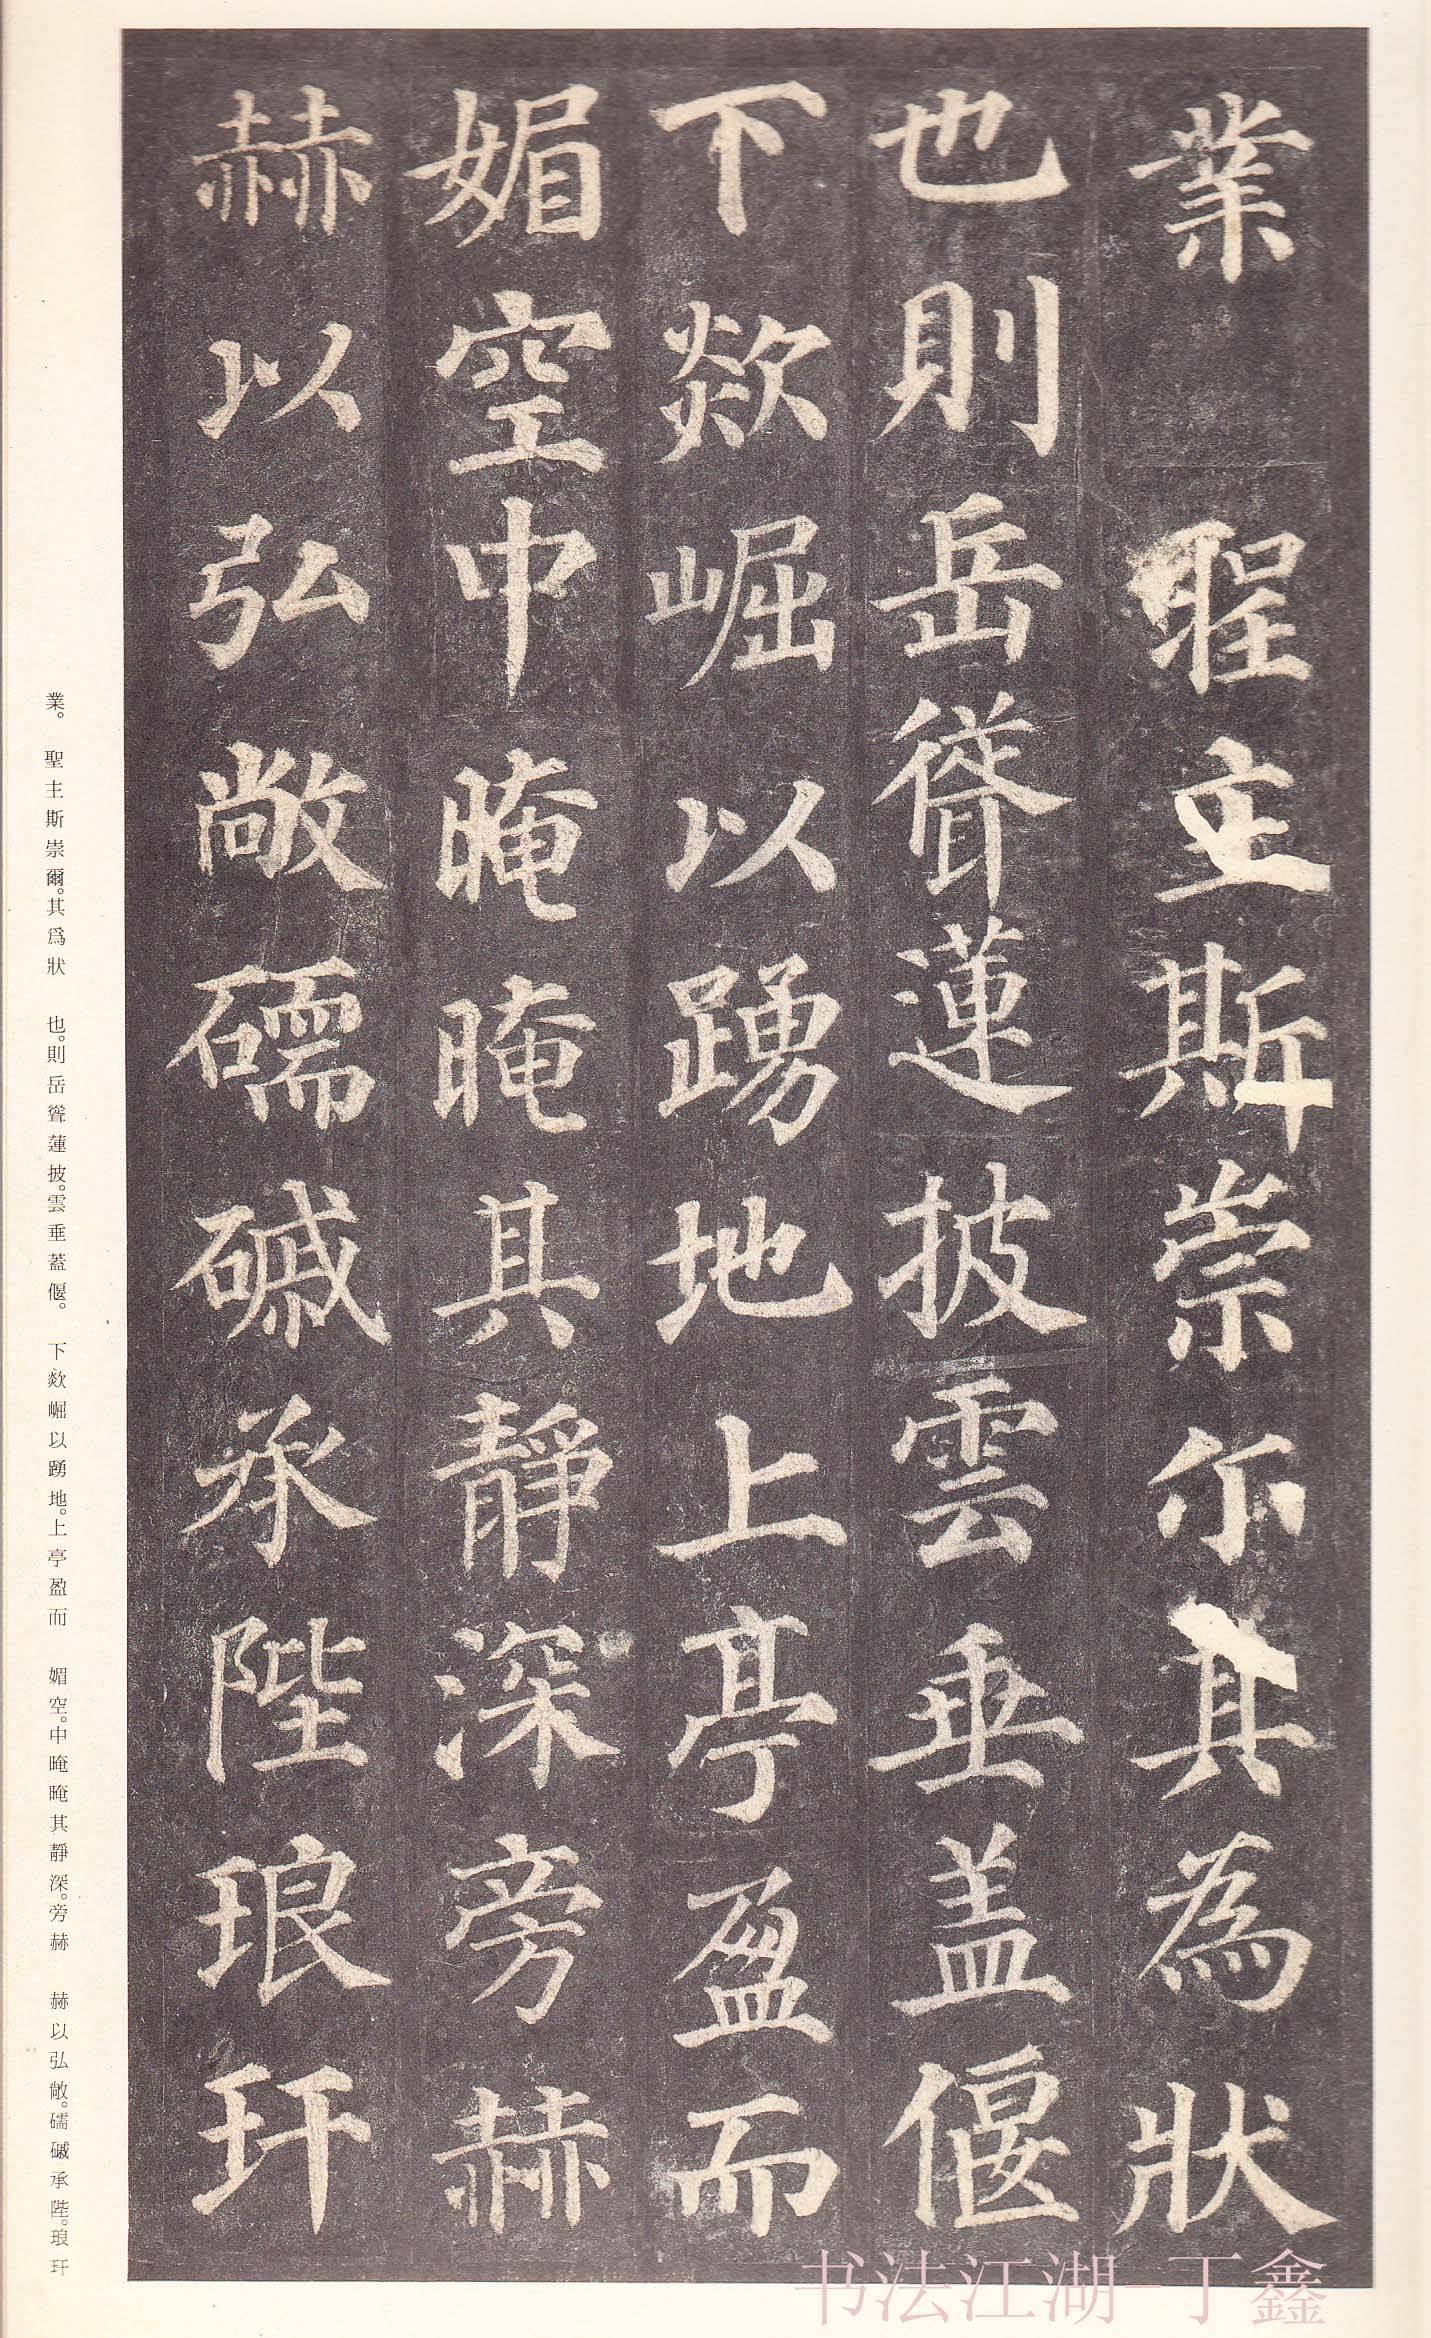 業　聖主斯崇尓其為狀
也則岳聳蓮披雲垂盖偃
下欻崛以踴地上亭盈而
媚空中晻晻其靜深旁赫
赫以弘敞礝磩承陛琅玕
業。　聖主斯崇爾。其爲狀　也。則岳聳蓮披。雲垂蓋偃。　下欻崛以踴地。上亭盈而　媚空。中晻晻其靜深。旁赫　赫以弘敞。礝磩承陛。琅玕
书法江湖-丁鑫